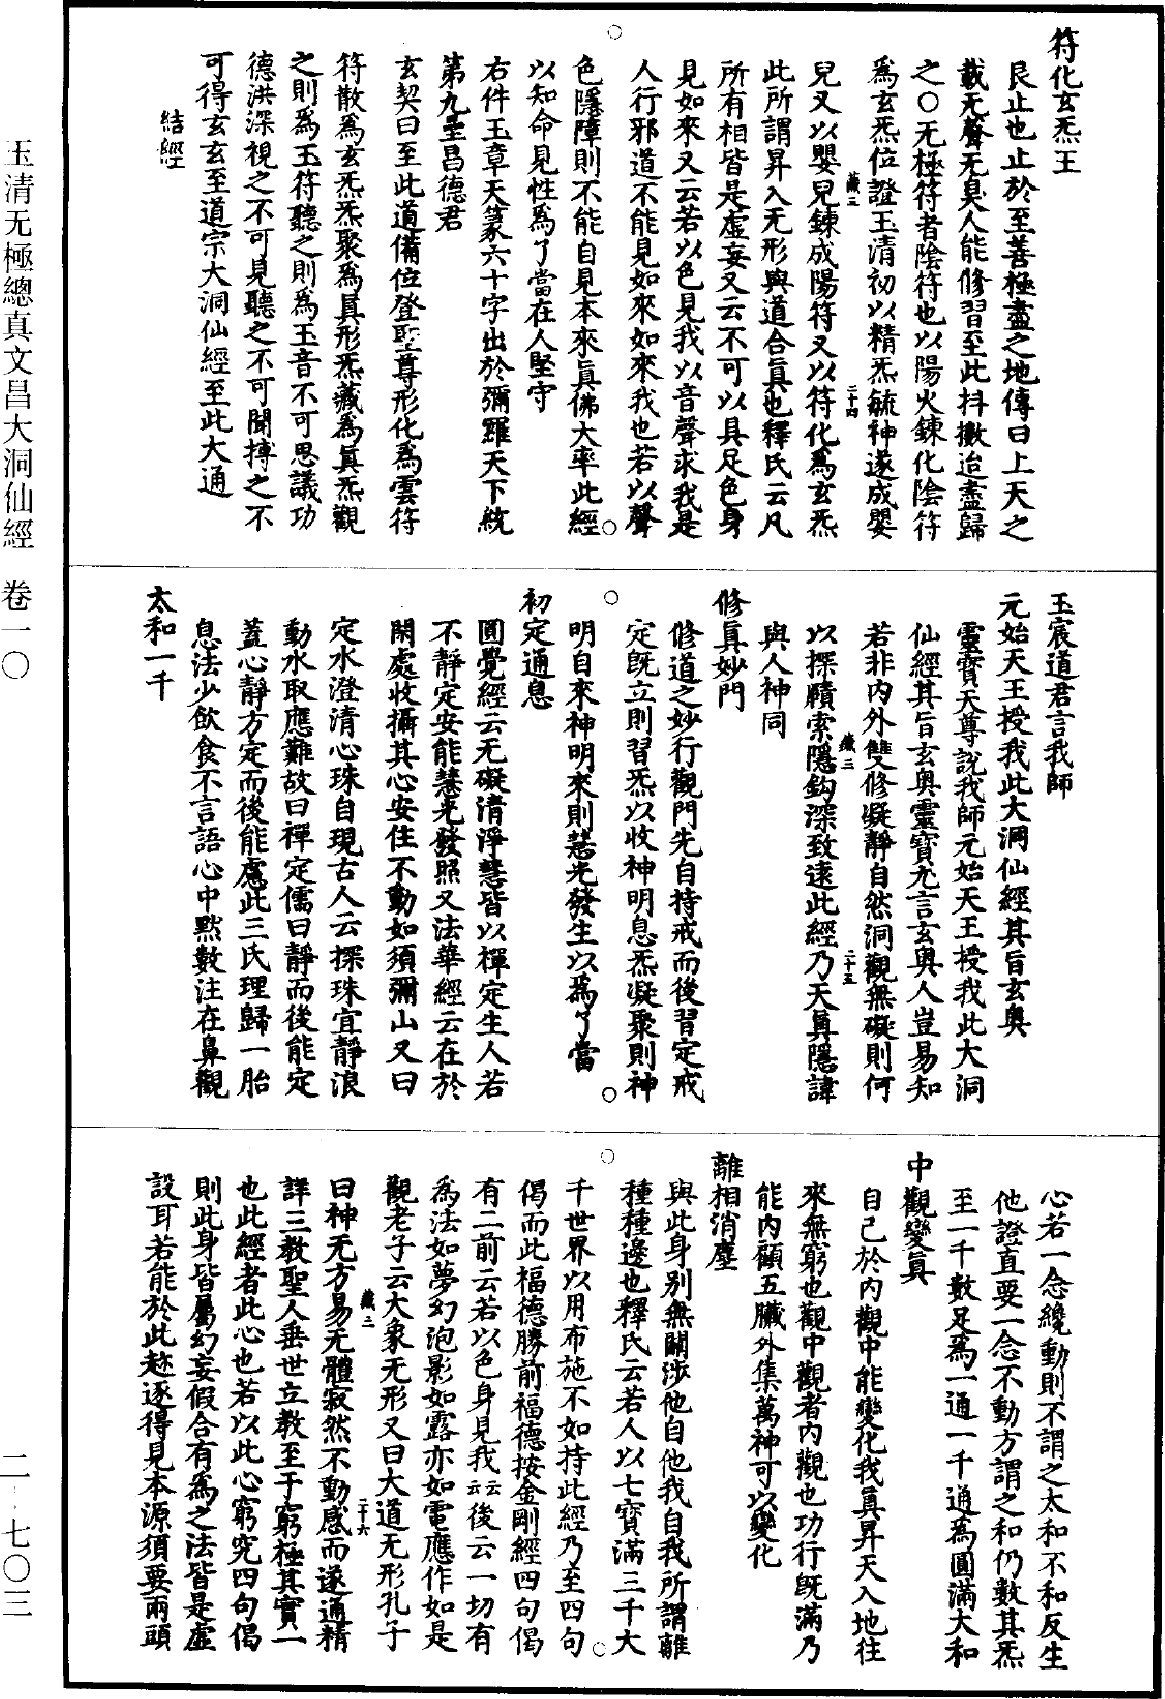 符化玄炁王
艮止也止於至善極盡之地傳曰上天之
載无聲无臭人能修習至此抖擻迨盡歸
之〇无極符者陰符也以陽火鍊化陰符
為玄炁位證玉清初以精炁毓神遂成嬰
藏三
二十四
兒又以嬰兒鍊成陽符又以符化為玄炁
此所謂昇入无形與道合眞也釋氏云凡
所有相皆是虛妄又云不可以具足色身
見如來又云若以色見我以音聲求我是
人行邪道不能見如來如來我也若以聲
色隱障則不能自見本來眞佛大率此經
以知命見性為了當在人堅守
右件玉章天篆六十字出於彌羅天下統
第九壘昌德君
玄契曰至此道備位登聖尊形化為雲符
符散為玄炁炁聚為眞形炁藏為眞炁觀
之則為玉符聽之則為玉音不可思議功
德洪深視之不可見聽之不可聞搏之不
可得玄玄至道宗大洞仙經至此大通
結經
玉宸道君言我師
元始天王授我此大洞仙經其旨玄奥
靈寶天尊說我師元始天王授我此大洞
仙經其旨玄奥靈寶尤言玄輿人豈易知
若非内外雙修凝靜自然洞觀無礙則何
藏三
二十五
以探賾索隱鈎深致遠此經乃天眞隱諱
與人神同
修眞妙門
修道之妙行觀門先自持戒而後習定戒
定旣立則習炁以收神明息炁凝聚則神
明自來神明來則慧光發生以為了當
初定通息
圓覺經云无礙清淨慧皆以禪定生人若
不靜定安能慧光發照又法華經云在於
閑處收攝其心安住不動如須彌山又曰
定水澄清心珠自現古人云探珠宜靜浪
動水取應難故曰禪定儒曰靜而後能定
蓋心靜方定而後能慮此三氏理歸一胎
息法少飲食不言語心中黙數注在鼻觀
太和一千
心若一念纔動則不謂之太和不和反生
他證直要一念不動方謂之和仍數其炁
至一千數足為一通一千通為圓滿大和
中觀變眞
自己於内觀中能變化我眞昇天入地往
來無窮也觀中觀者内觀也功行旣滿乃
能内顧五臟外集萬神可以變化
離相消塵
與此身别無關涉他自他我自我所謂離
種種邊也釋氏云若人以七寳滿三千大
千世界以用布施不如持此經乃至四句
偈而此福德勝前福德按金剛經四句偈
有二前云若以色身見我云云後云一切有
為法如夢幻泡影如露亦如電應作如是
觀老子云大象无形又曰大道无形孔子
藏三
二十六
曰神无方易无體寂然不動感而遂通精
詳三教聖人垂世立教至于窮極其實一
也此經者此心也若以此心窮究四句偈
則此身皆屬幻妄假合有為之法皆是虛
設耳若能於此趂逐得見本源須要兩頭
玉清无極總真文昌大洞仙經　卷一〇
二-七〇三